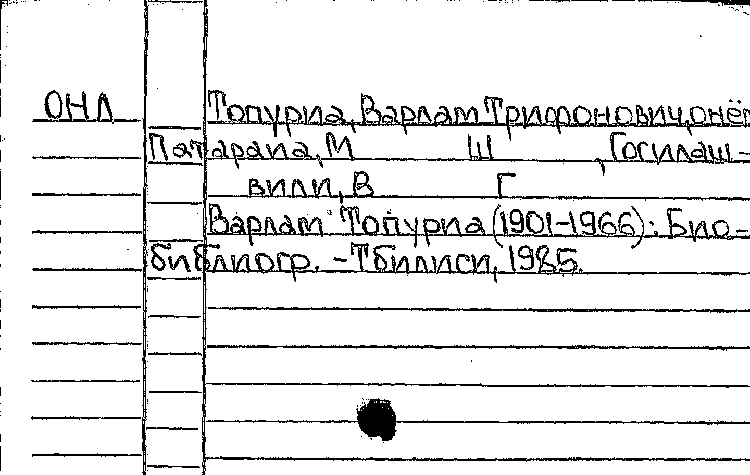 ОНЛ Топурия, Варлам Трифонович, о нём
Патарая, М Ш , Госилаш-
вили, В Г
Варлам Топурия (1901-1966): Био-
библиогр. -Тбилиси, 1985.